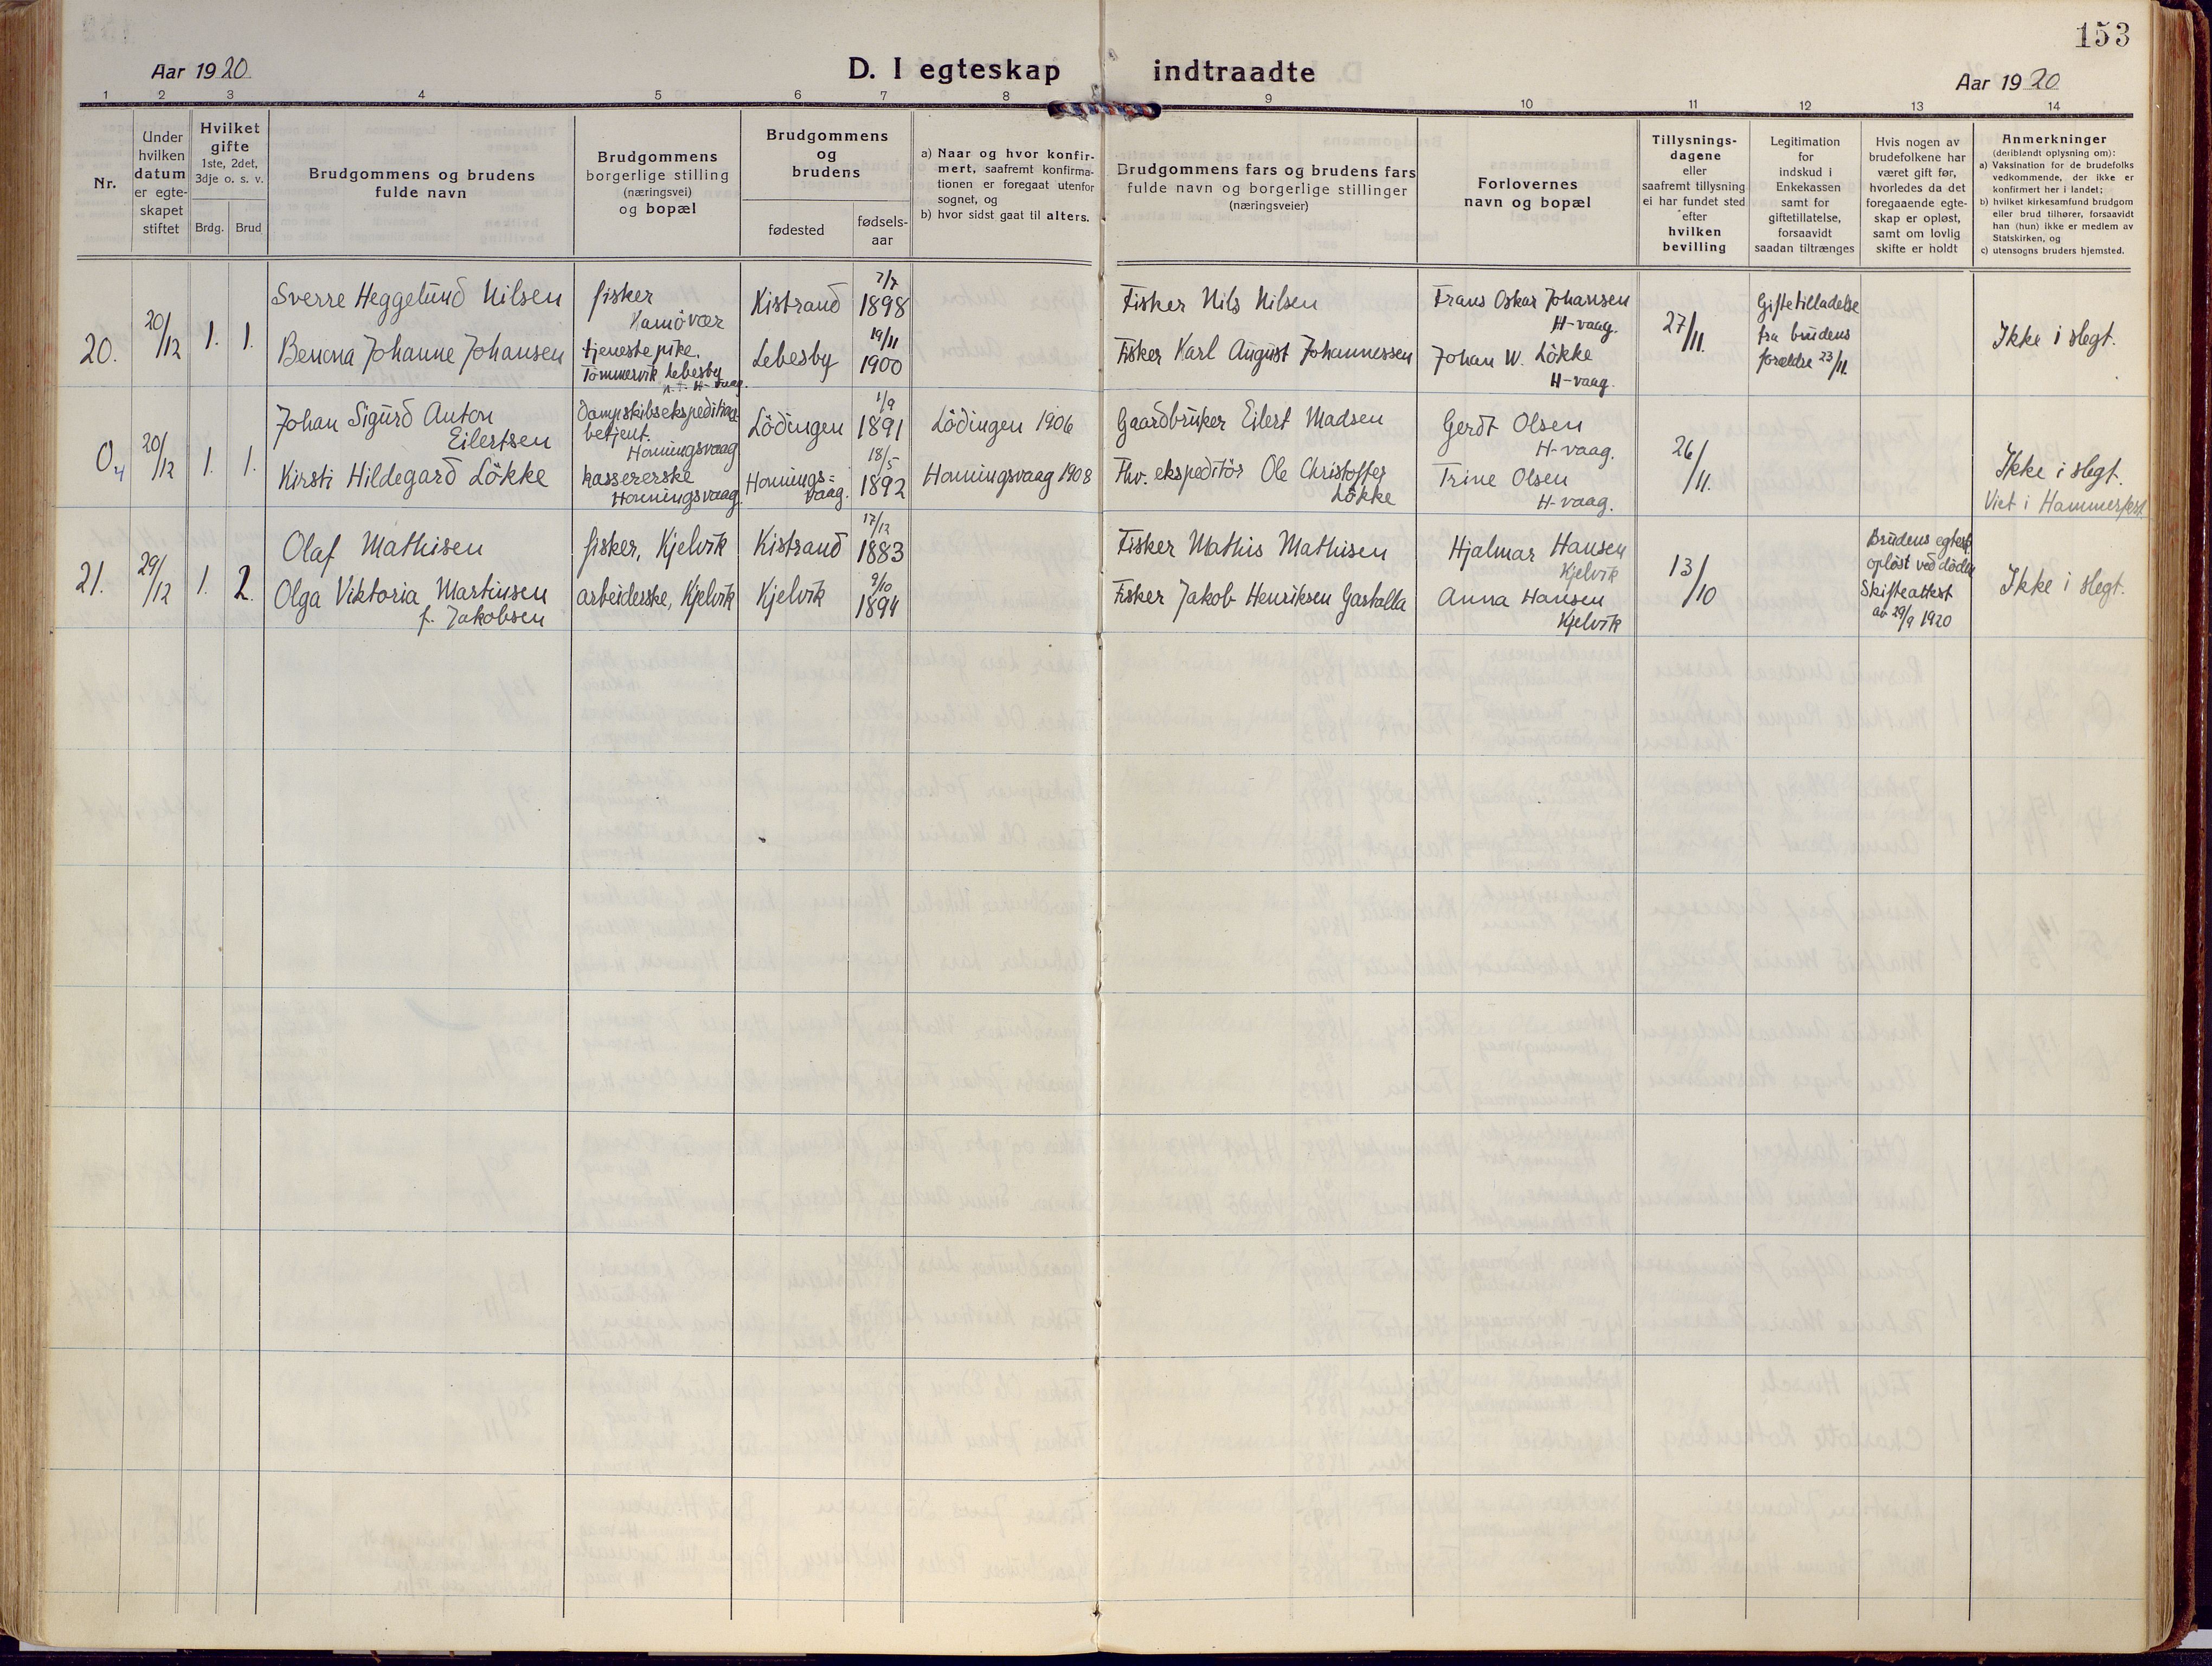 153
Aar 1920
D. I egteskap indtraadte
Aar 1920
1 2 3 4 5 6 7 8 9 10 11 12 13 14
Nr.
Under
hvilken
datum
er egte-
skapet
stiftet
Hvilket
gifte
1ste, 2det,
3dje o. s. v.
Brdg. Brud
Brudgommens og brudens
fulde navn
Brudgommens
borgerlige stilling
(næringsvei)
og bopæl
Brudgommens
og
brudens
fødested
fødsels-
aar
a) Naar og hvor konfir-
mert, saafremt konfirma-
tionen er foregaat utenfor
sognet, og
b) hvor sidst gaat til alters.
Brudgommens fars og brudens fars
fulde navn og borgerlige stillinger
(næringsveier)
Forlovernes
navn og bopæl
Tillysnings-
dagene
eller
saafremt tillysning
ei har fundet sted
efter
hvilken
bevilling
Legitimation
for
indskud i
Enkekassen
samt for
giftetillatelse,
forsaavidt
saadan tiltrænges
Hvis nogen av
brudefolkene har
været gift før,
hvorledes da det
foregaaende egte-
skap er opløst,
samt om lovlig
skifte er holdt
Anmerkninger
(deriblandt oplysning om):
a) Vaksination for de brudefolks
vedkommende, der ikke er
konfirmert her i landet;
b) hvilket kirkesamfund brudgom
eller brud tilhører, forsaavidt
han (hun) ikke er medlem av
Statskirken, og
c) utensogns bruders hjemsted.
20.
20/12
1. 1.
Sverre Heggelund Nilsen
Benona Johanne Johansen
fisker
Kamövær
tjenestepike,
Tömmervik Lebesby
Kistrand
Lebesby
7/7
1898
19/11
1900
Fisker Nils Nilsen
Fisker Karl August Johannessen
Frans Oskar Johansen
H-vaag.
Johan W. Lökke
H-vaag.
27/11.
Giftetilladelse
fra brudens
forældre 23/11.
Ikke i slegt.
04
20/12
1. 1.
Johan Sigurd Anton
Eilertsen
Kirsti Hildegard Lökke
Dampskibsekspeditions
betjent.
Honningsvaag
kassererske
Honningsvaag
Lödingen
Honnings=
vaag.
1/9
1891
18/5
1892
Lödingen 1906
Honningsvaag 1908
Gaardbruker Eilert Madsen
Fhv. ekspeditör Ole Christoffer
Lökke
Gerdt Olsen
H-vaag.
Trine Olsen
H-vaag.
26/11.
Ikke i slegt.
Viet i Hammerfest.
21.
29/12
1. 2.
Olaf Mathisen
Olga Viktoria Martinsen
f. Jakobsen
fisker, Kjelvik
arbeiderske, Kjelvik
Kistrand
Kjelvik
17/12
1883
9/10
1894
Fisker Mathis Mathisen
Fisker Jakob Henriksen Gastalla
Hjalmar Hansen
Kjelvik
Anna Hansen
Kjelvik
13/10
Brudens egtesk.
oplöst ved döden
Skifteattest
av 29/9 1920
Ikke i slegt.